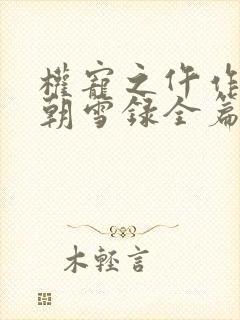 權寵之仵作
朝雪録全篇
木輕言